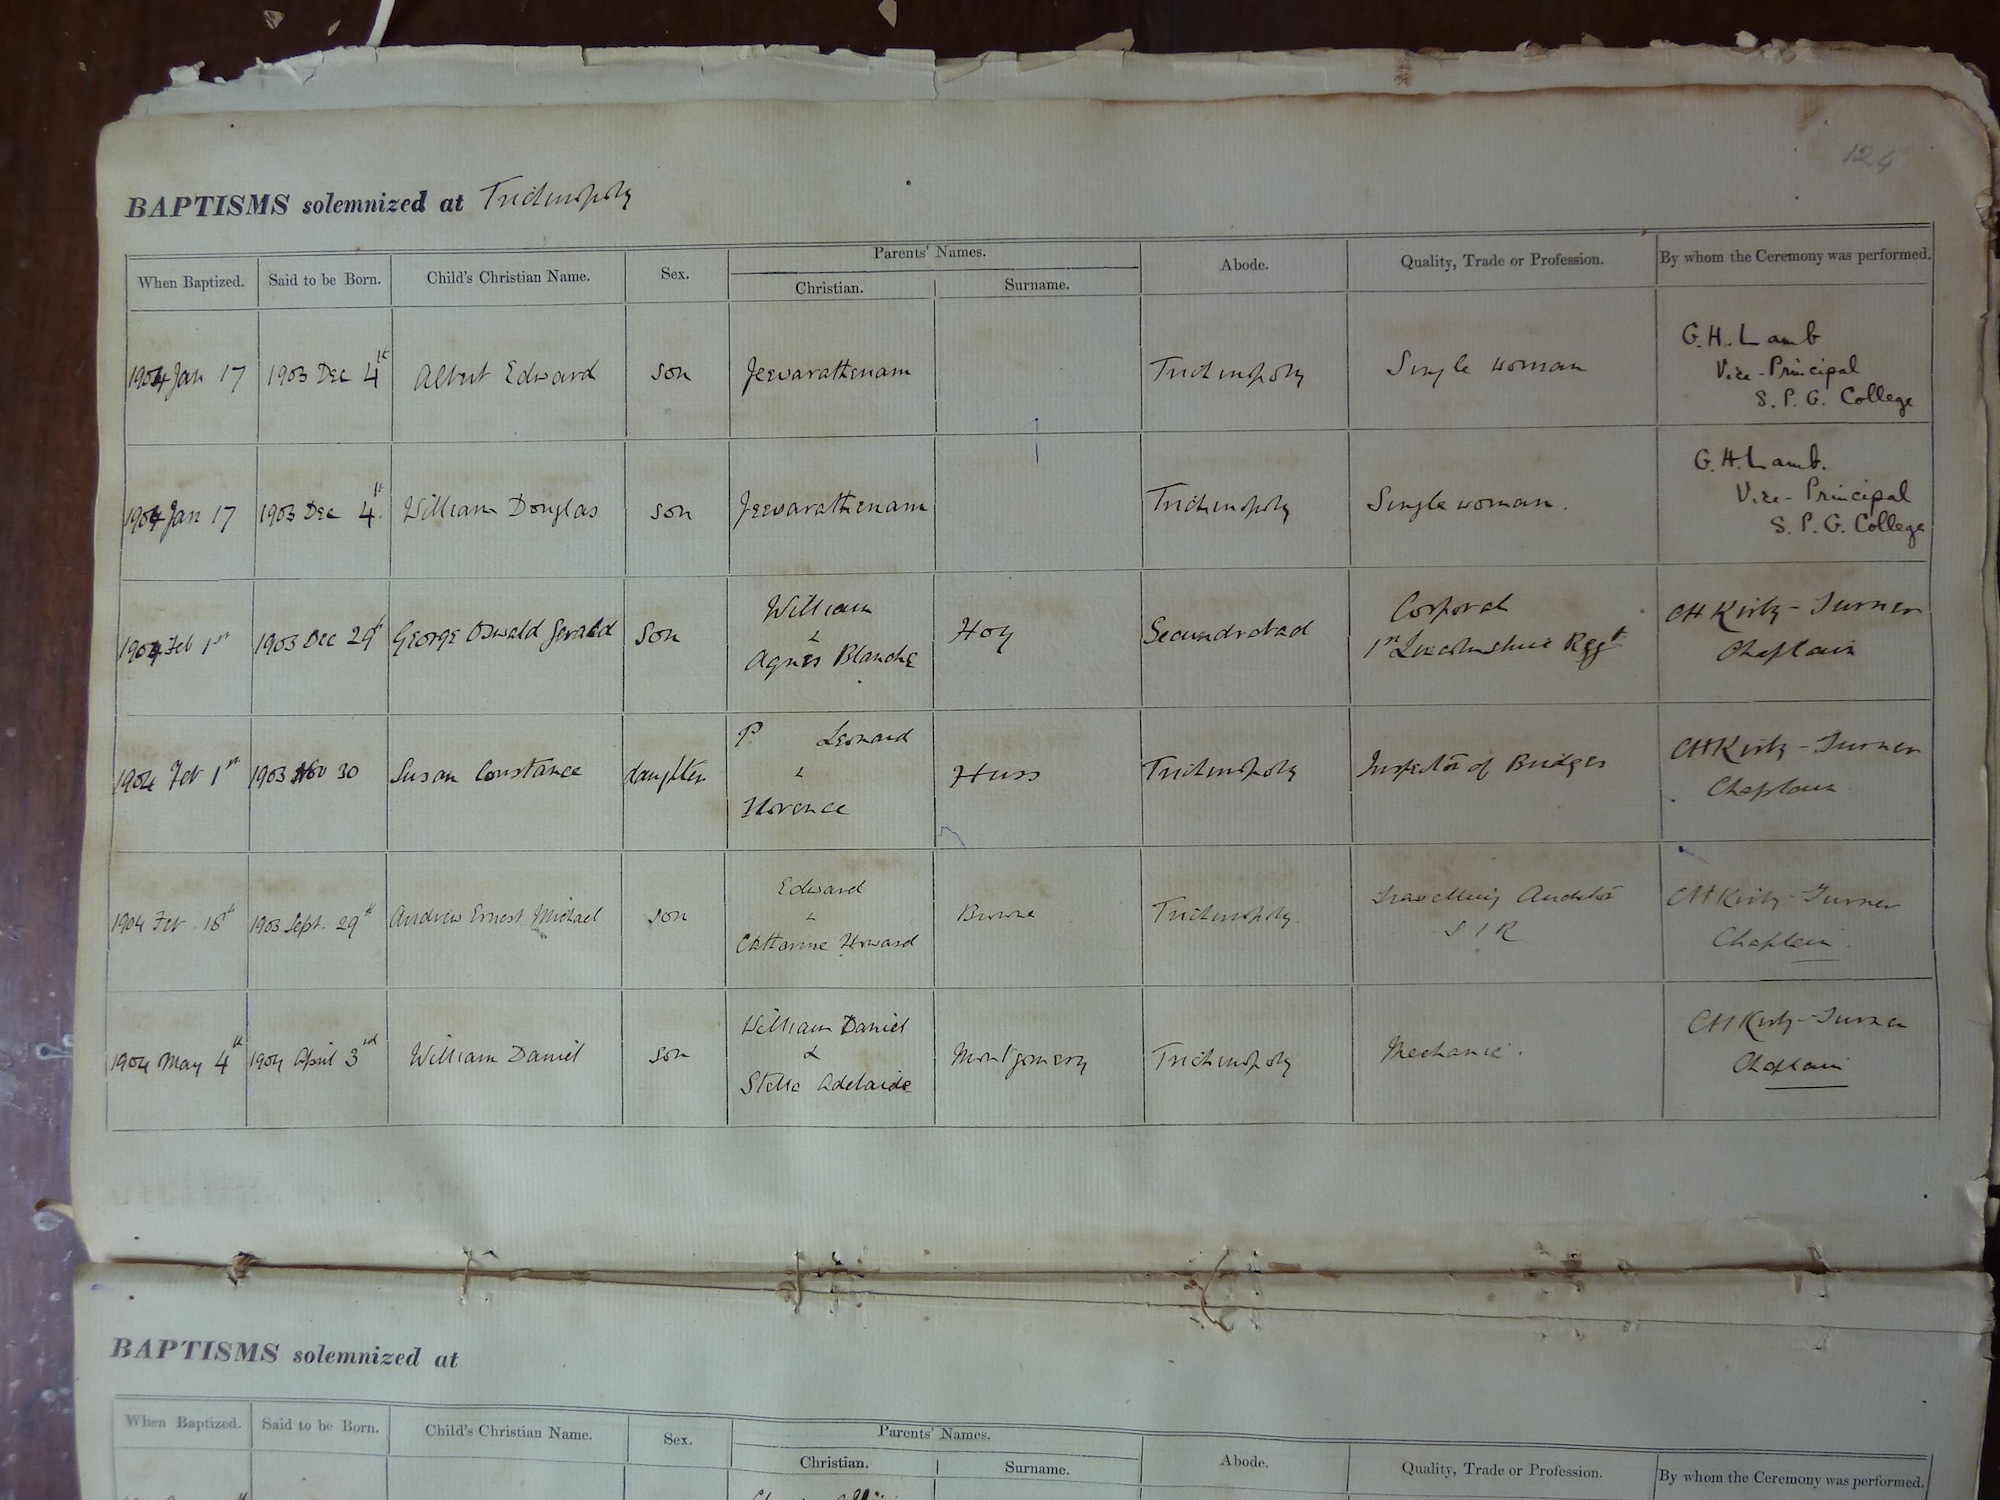 124
BAPTISMS solemnized at Trichinopoly
When Baptized. Said to be Born. Child's Christian Name. Sex. Parents' Names. Abode. Quality, Trade or Profession. By whom the Ceremony was performed.
Christian. Surname.
1904 Jan 17 1903 Dec 4th Albert Edward son Jeevarathenam Trichinopoly Single woman G. H. Lamb
Vice-Principal
S. P. G. College
1904 Jan 17 1903 Dec 4th William Douglas son Jeevarathenam Trichinopoly Single woman. G. H. Lamb.
Vice-Principal
S. P. G. College
1904 Feb 1st 1903 Dec 29th George Oswald Gerald son William & Agnes Blanche Hoy Secundrabad Corporal
1st Lincolnshire Regt CH Kirby-Turner
Chaplain
1904 Feb 1st 1903 Nov 30 Susan Constance daughter P Leonard & Florence Huss Trichinopoly Inspector of Bridges CH Kirby-Turner
Chaplain
1904 Feb. 18th 1903 Sept. 29th Andrew Ernest Michael son Edward & Catharine Howard Browne Trichinopoly. Travelling Auditor
S I R CH Kirby-Turner
Chaplain.
1904 May 4th 1904 April 3rd William Daniel son William Daniel & Stella Adelaide Montgomery Trichinopoly Mechanic. CH Kirby-Turner
Chaplain
BAPTISMS solemnized at
When Baptized. Said to be Born. Child's Christian Name. Sex. Parents' Names. Abode. Quality, Trade or Profession. By whom the Ceremony was performed.
Christian. Surname.